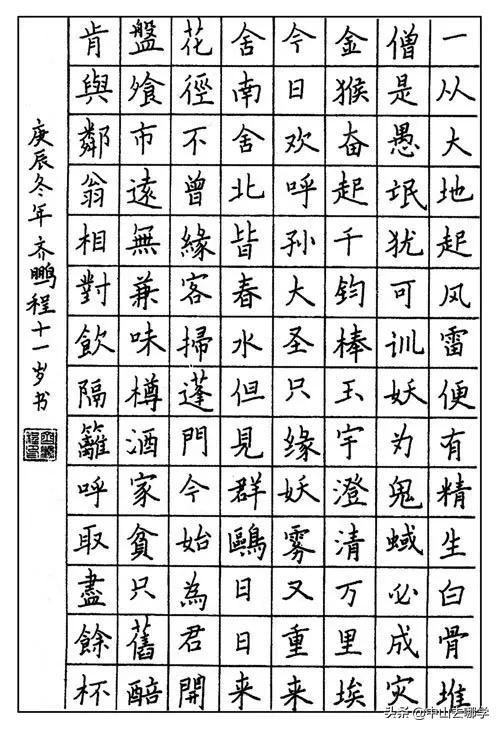 一从大地起风雷便有精生白骨堆
僧是愚氓犹可训妖为鬼蜮必成灾
金猴奋起千钧棒玉宇澄清万里埃
今日欢呼孙大圣只缘妖雾又重来
舍南舍北皆春水但見群鷗日日来
花徑不曾緣客掃蓬門今始為君開
盤飧市遠無兼味樽酒家貧只舊醅
肯與鄰翁相對飲隔籬呼取盡餘杯
庚辰冬年齐鹏程十一岁书
头条@中山去哪学